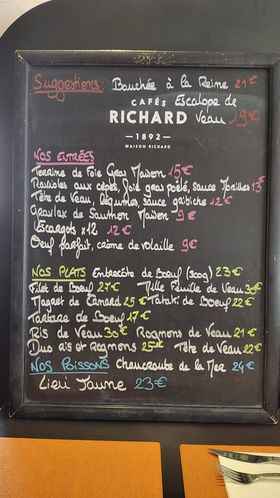 Suggestions: Bouchée à la Reine 21€
CAFÉS Escalope de
RICHARD Veau 19€
1892
MAISON RICHARD
NOS ENTRÉES
Terrine de Foie Gras Maison 15€
Ravioles aux cèpes, foie gras poêlé, sauce Morilles 13€
Tête de Veau, légumes, sauce gribiche 12€
Gravlax de Saumon Maison 9€
Escargots x12 12€
Oeuf parfait, crème de volaille 9€
NOS PLATS Entrecôte de Boeuf (300g) 23€
Filet de Boeuf 27€ Mille Feuille de Veau 30€
Magret de Canard 25€ Tataki de Boeuf 22€
Tartare de Boeuf 17€
Ris de Veau 30€ Rognons de Veau 21€
Duo ris et Rognons 25€ Tête de Veau 22€
NOS POISSONS Choucroute de la Mer 24€
Lieu Jaune 23€